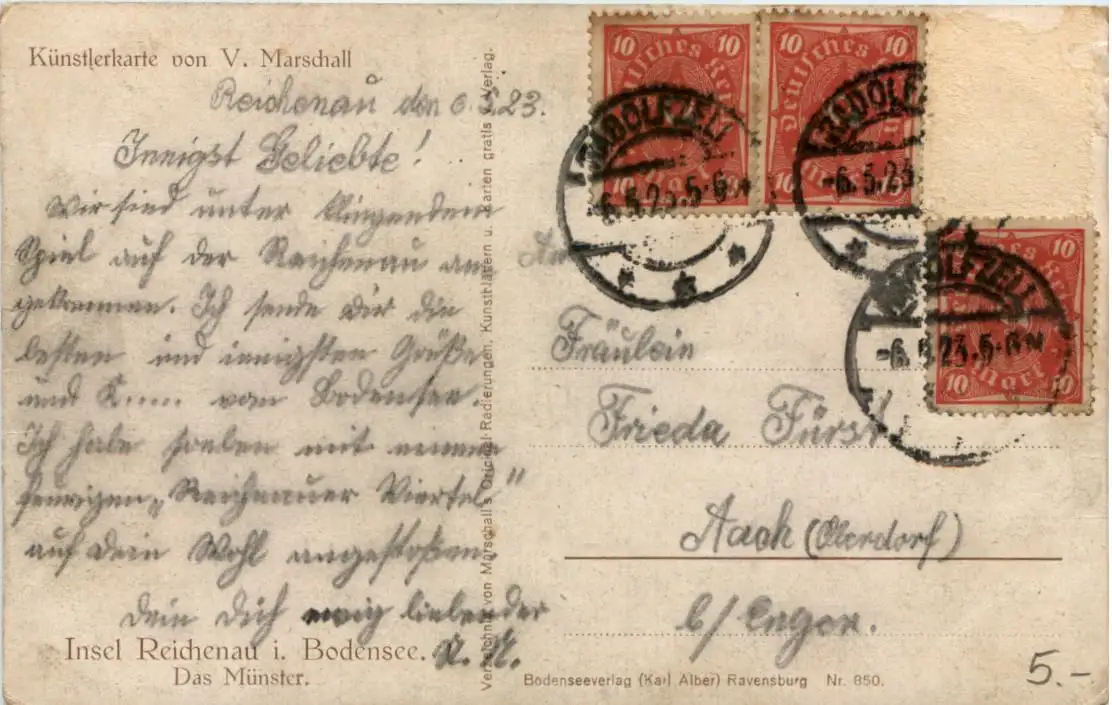 Künstlerkarte von V. Marschall
Reichenau den 6.5.23.
Innigst Geliebte!
Wir sind unter klingendem
Spiel auf der Reichenau an-
gekommen. Ich sende Dir die
besten und innigsten Grüße
und K..... vom Bodensee.
Ich habe soeben mit einem
feurigen „Reichenauer Viertel"
auf Dein Wohl angestoßen
Dein Dich ewig liebender
Insel Reichenau i. Bodensee.
Das Münster.
Verzeichnis von Marschall's Original-Radierungen, Kunstblättern u. Karten gratis v. Verlag.
10 Deutsches Reich 10
10 Mark 10
10 Deutsches Reich 10
10 Mark 10
RADOLFZELL
-6.5.23.5-6N
RADOLFZELL
-6.5.23
10
10 Mark 10
RADOLFZELL
-6.5.23.5-6N
Fräulein
Frieda Fürst
Aach (Oberdorf)
b/ Engen.
Bodenseeverlag (Karl Alber) Ravensburg Nr. 850.
5.-